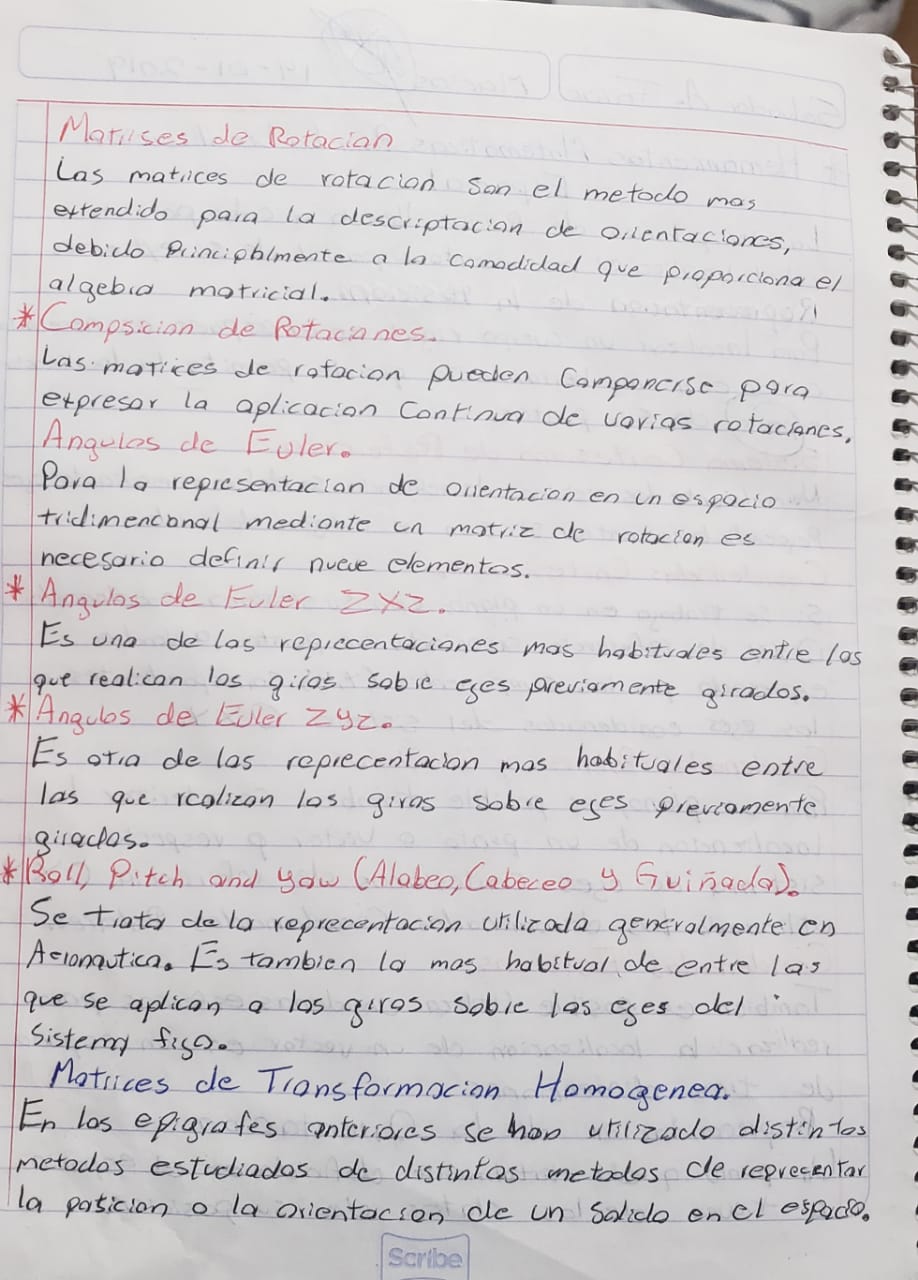 Matrises de Rotacion
Las matrices de rotacion son el metodo mas
extendido para la descriptacion de orientaciones,
debido principalmente a la comodidad que proporciona el
algebra matricial.
* Compsicion de Rotaciones.
Las matrices de rotacion pueden Componerse para
expresar la aplicacion Continua de varias rotaciones.
Angulos de Euler.
Para la representacion de orientacion en un espacio
tridimencional mediante un matriz de rotacion es
necesario definir nueve elementos.
* Angulos de Euler ZXZ.
Es una de las reprecentaciones mas habituales entre las
que realican los giros sobre eges previamente girados.
* Angulos de Euler ZYZ.
Es otra de las reprecentacion mas habituales entre
las que realizan los giros sobre eges previamente
girados.
* Roll, Pitch and yaw (Alabeo, Cabeceo y Guiñada).
Se trata de la reprecentacion utilizada generalmente en
Aeronautica. Es tambien la mas habitual de entre las
que se aplican a los giros sobre los eges del
Sistema figo.
Matrices de Transformacion Homogenea.
En los epigrafes anteriores se han utilizado distintos
metodos estudiados de distintos metodos de reprecentar
la posicion o la orientacion de un solido en el espacio.
Scribe